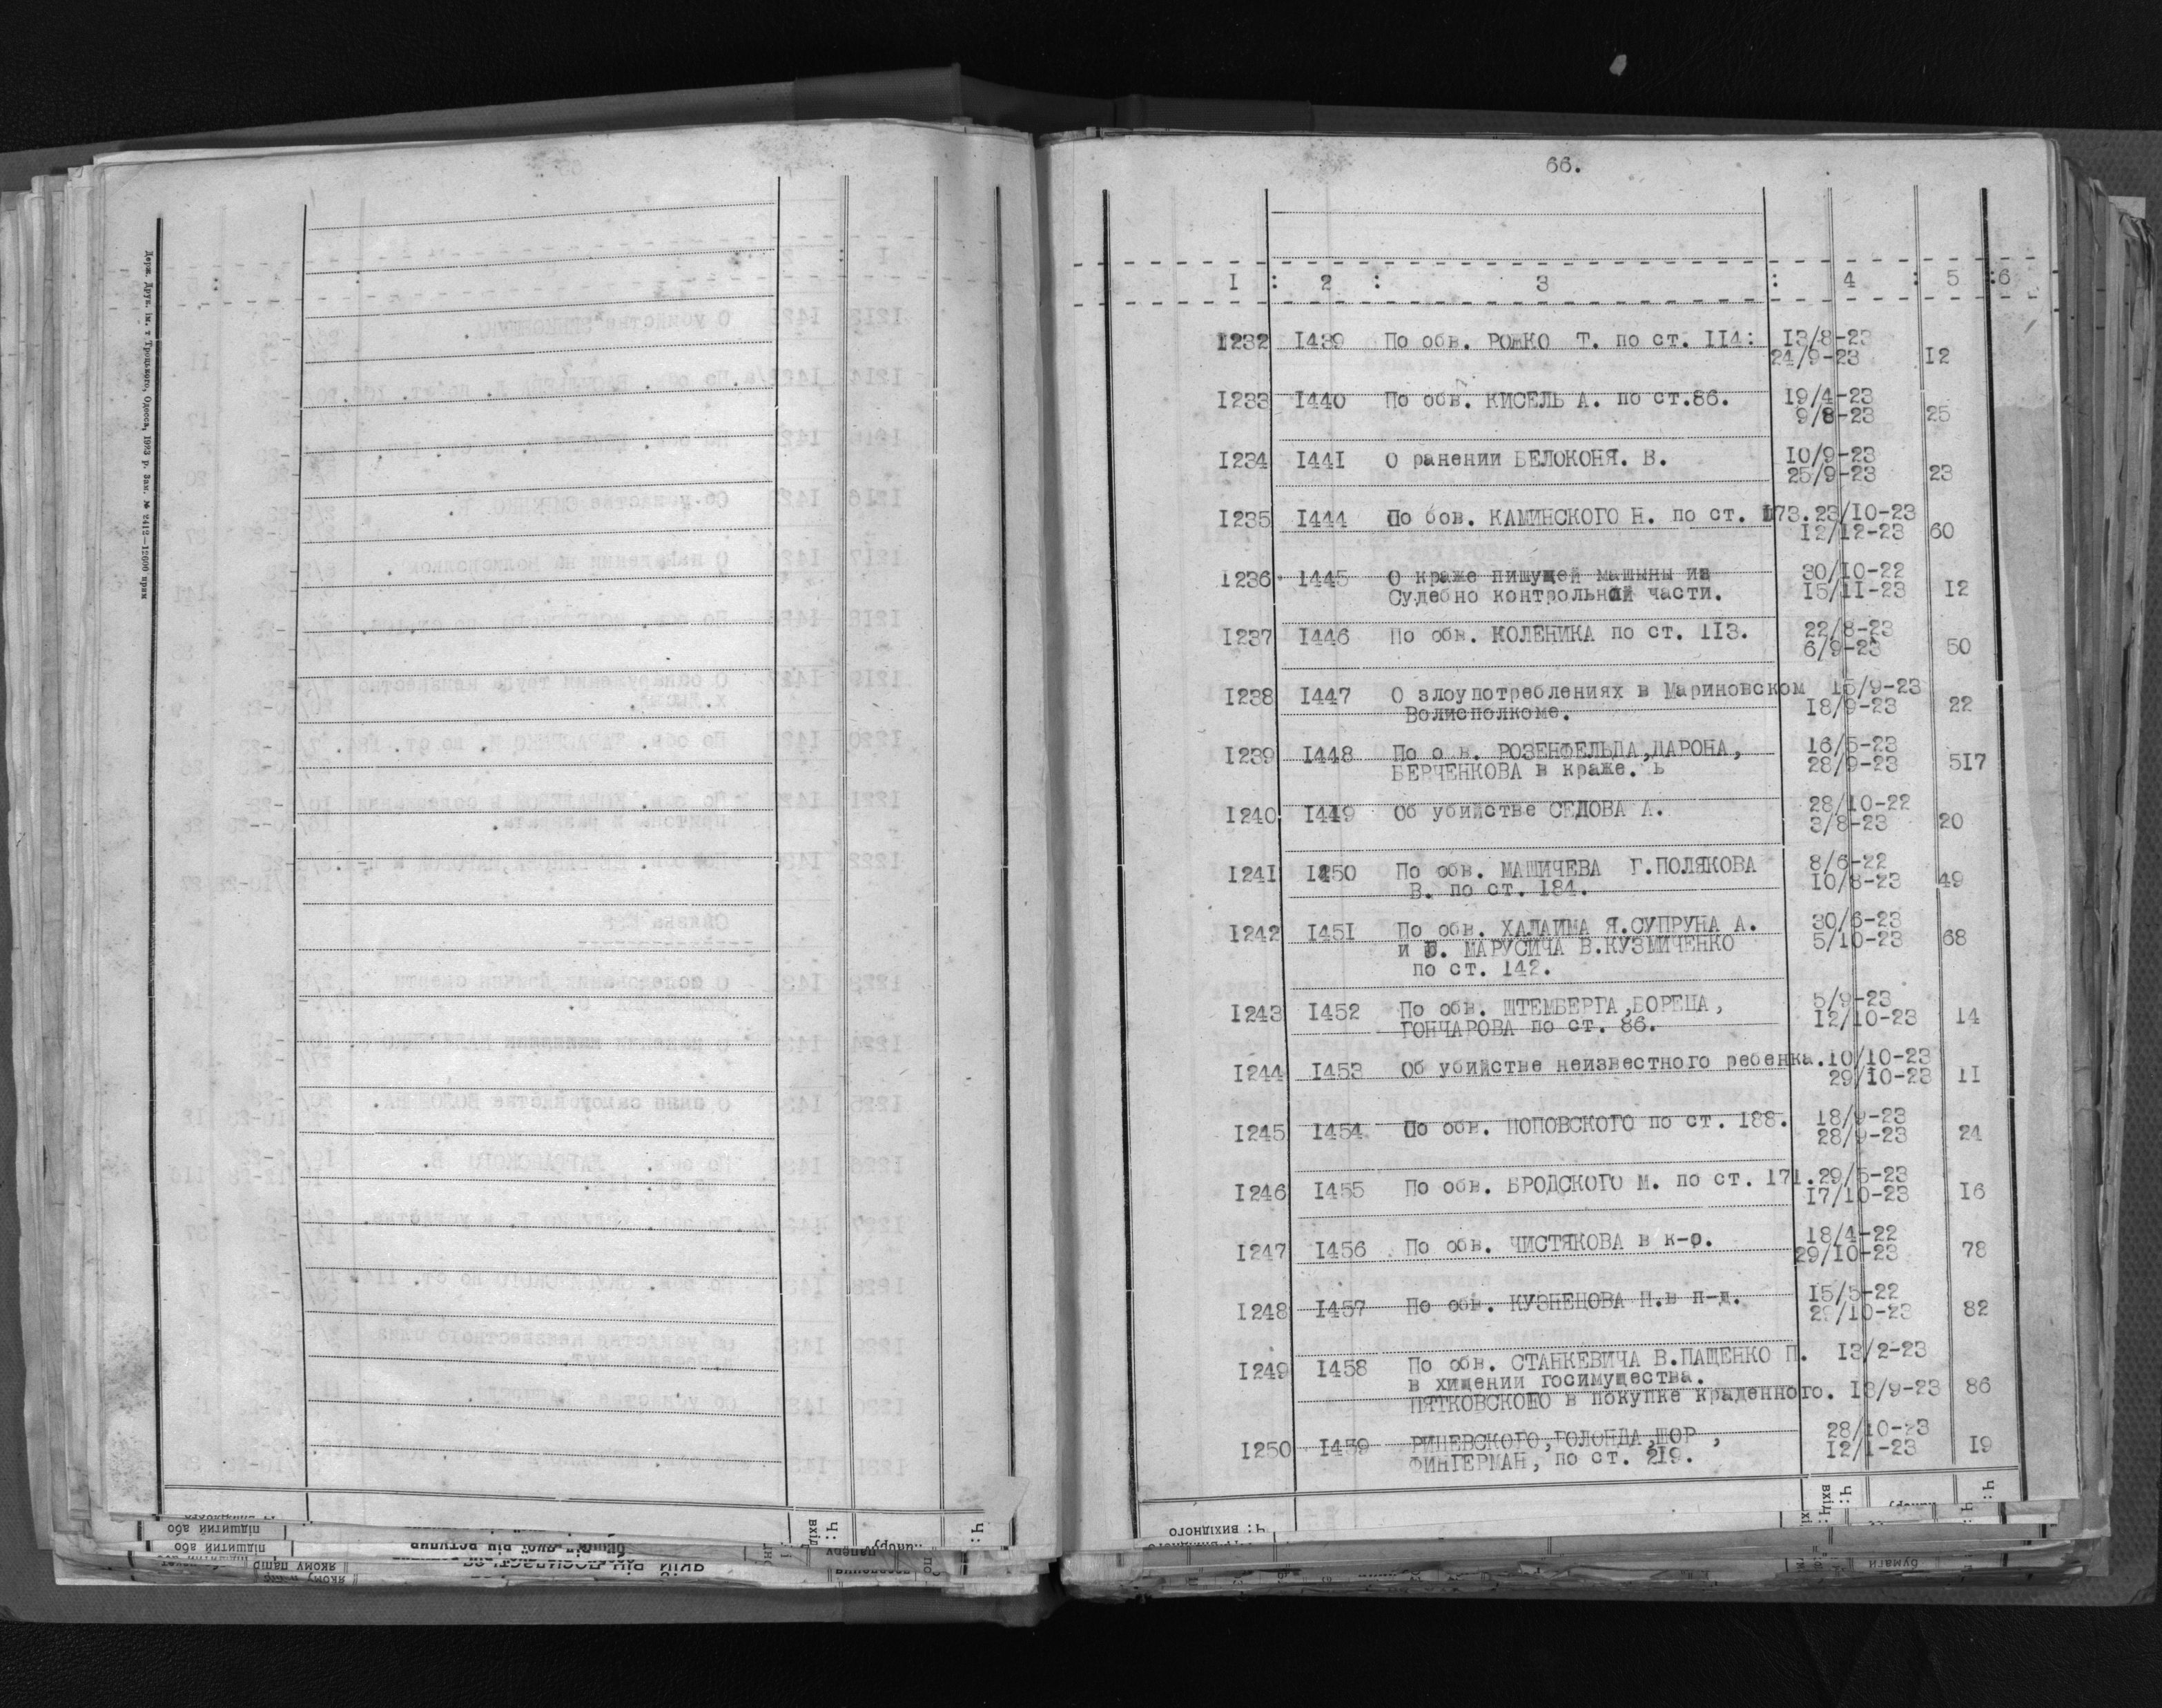 Держ. Друк. ім. т Троцького, Одеса, 1923 р. Зам. № 2412—12000 прим
66.
I : 2 : 3 : 4 : 5 :6
1232 I439 По обв. РОЖКО Т. по ст. II4: I3/8-23
24/9-23 I2
I233 I440 По обв. КИСЕЛЬ А. по ст.86. I9/4-23
9/8-23 25
I234 I44I О ранении БЕЛОКОНЯ. В. I0/9-23
25/9-23 23
I235 I444 По обв. КАМИНСКОГО Н. по ст. I73. 23/I0-23
I2/I2-23 60
I236 I445 О краже пишущей машыны из 30/I0-22
Судебно контрольной части. I5/II-23 I2
I237 I446 По обв. КОЛЕНИКА по ст. II3. 22/8-23
6/9-23 50
I238 I447 О злоупотреблениях в Мариновском I5/9-23
Волисполкоме. I8/9-23 22
I239 I448 По о в. РОЗЕНФЕЛЬДА,ДАРОНА, I6/5-23
БЕРЧЕНКОВА в краже. ь 28/9-23 5I7
I240 I449 Об убийстве СЕДОВА А. 28/I0-22
3/8-23 20
I24I I450 По обв. МАШИЧЕВА Г.ПОЛЯКОВА 8/6-22
В. по ст. I84. I0/8-23 49
I242 I45I По обв. ХАЛАИМА Я.СУПРУНА А. 30/6-23
и Б. МАРУСИЧА В.КУЗМИЧЕНКО 5/I0-23 68
по ст. I42.
I243 I452 По обв. ШТЕМБЕРГА,БОРЕЦА, 5/9-23
ГОНЧАРОВА по ст. 86. I2/I0-23 I4
I244 I453 Об убийстве неизвестного ребенка. I0/I0-23
29/I0-23 II
I245 I454 По обв. ПОПОВСКОГО по ст. I88. I8/9-23
28/9-23 24
I246 I455 По обв. БРОДСКОГО М. по ст. I7I. 29/5-23
I7/I0-23 I6
I247 I456 По обв. ЧИСТЯКОВА в к-р. I8/4-22
29/I0-23 78
I248 I457 По обв. КУЗНЕЦОВА Н.в п-д. I5/5-22
29/I0-23 82
I249 I458 По обв. СТАНКЕВИЧА В.ПАЩЕНКО П. I3/2-23
в хищении госимущества.
ПЯТКОВСКОГО в покупке краденного. I8/9-23 86
I250 I459 28/I0-23
ФИНГЕРМАН, по ст. 2I9. I2/I-23 I9
Ч: вхід.
Ч: вихідного
підшитий або
підшитий або
якому папір
якому
бумаги